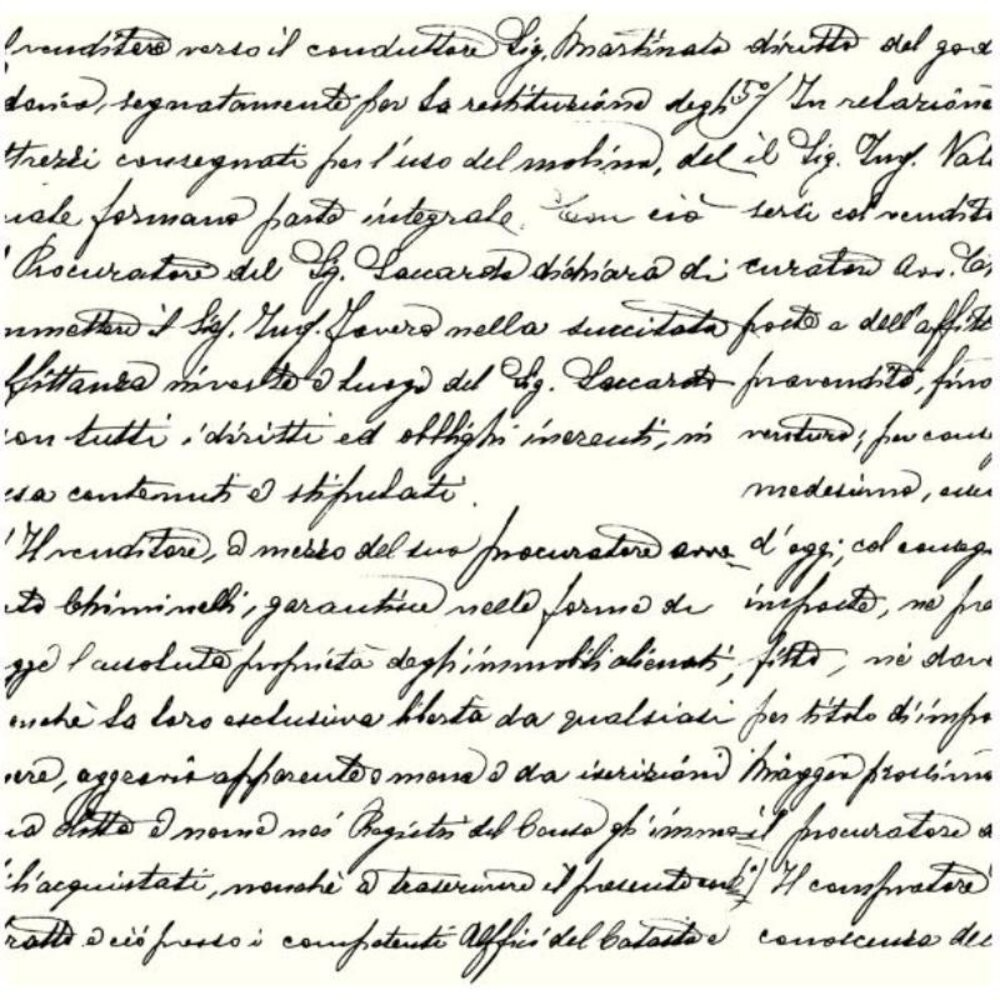 venditore verso il conduttore Sig. Martinato diretto del god
segnatamente per la restituzione degli 5°/ In relazione
ttrezzi consegnati per l'uso del molino, del il Sig. Ing. Val
uale formano parte integrale. Con ciò sersi col vendito
Procuratore del Sig. Saccardo dichiara di curatore Avv.
mmettere il Sig. Ing. Favero nella succitata parte e dell'affitto
fittanza investito e luogo del Sig. Saccardo provendità, fino
on tutti i diritti ed obblighi inerenti, in venturo; per cons
sa contenuti e stipulati. medesimo,
Il venditore, a mezzo del suo procuratore avvo d'oggi, col conseg
to Chiminelli, garantisce nelle forme di imposte, ne pre
gge l'assoluta proprietà degli immobili alienati, fitto, nè dov
onchè la loro esclusiva libertà da qualsiasi per titolo di impo
ere, aggravio apparente o meno e da iscrizioni Maggio prossimo
ia ditta e nome nei Registri del Censo gl'immo il procuratore
li acquistati, nonchè a trascrivere il presente con 6°/ Il compratore
ratto e ciò presso i competenti Uffici del Catasto e conoscenza de